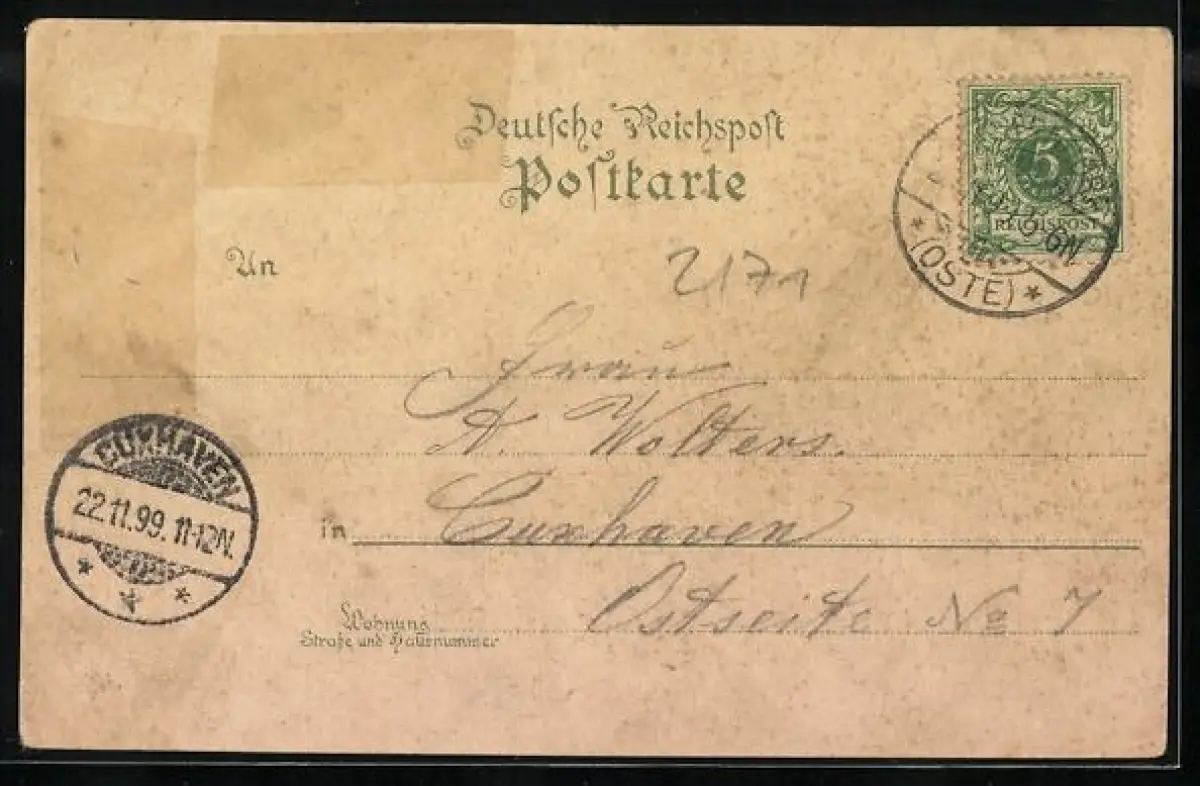 Deutsche Reichspost
Postkarte
5
REICHSPOST
6N
* (OSTE) *
An
2171
Frau
A. Wolters.
in Cuxhaven
Ostseite No 7
Wohnung
Straße und Hausnummer
CUXHAVEN
22.11.99. 11-12N.